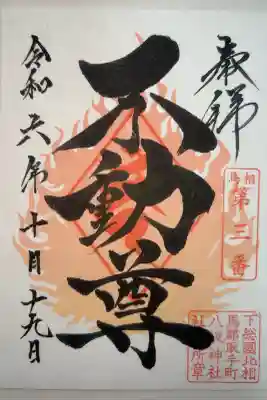 奉拝
相馬
第三番
不動尊
令和六年十月十九日
下総國北相
馬郡取手町
八坂神社
社務所章